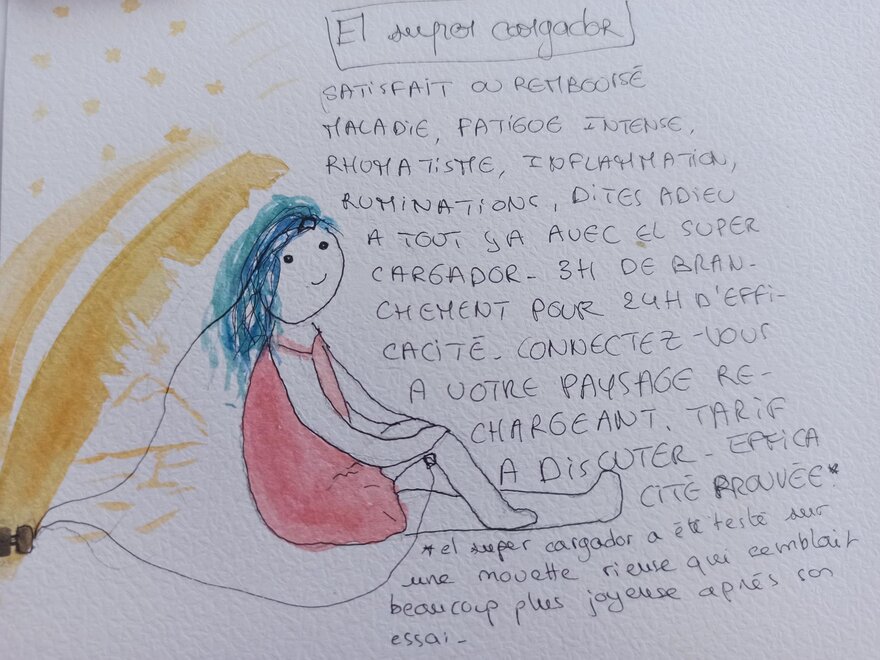 El super cargador
SATISFAIT OU REMBOURSÉ
MALADIE, FATIGUE INTENSE,
RHUMATISME, INFLAMMATION,
RUMINATIONS, DITES ADIEU
A TOUT ÇA AVEC EL SUPER
CARGADOR - 3H DE BRAN-
CHEMENT POUR 24H D'EFFI-
CACITÉ. CONNECTEZ-VOUS
A VOTRE PAYSAGE RE-
CHARGEANT. TARIF
A DISCUTER - EFFICA
CITÉ PROUVÉE*
*el super cargador a été testé sur
une mouette rieuse qui semblait
beaucoup plus joyeuse après son
essai -